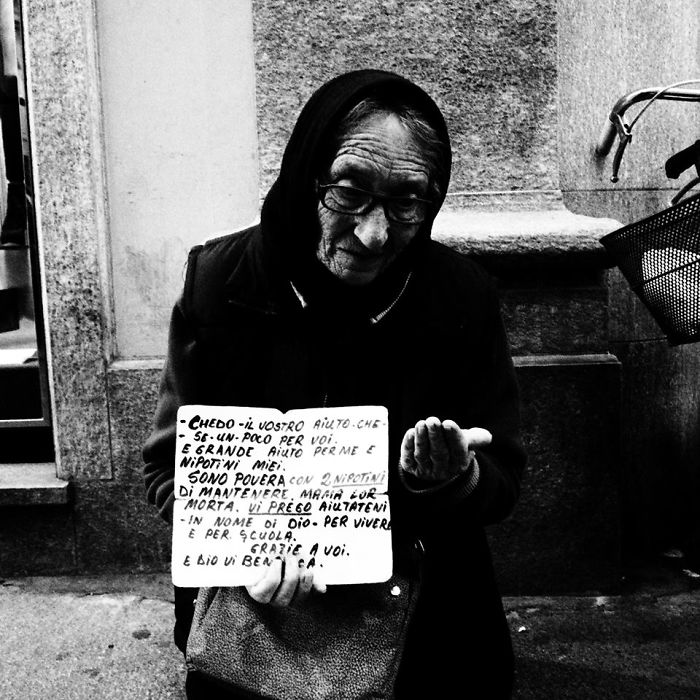 - CHEDO - IL VOSTRO AIUTO - CHE -
- SE - UN - POCO PER VOI.
E GRANDE AIUTO PER ME E
NIPOTINI MIEI.
SONO POVERA CON 2 NIPOTINI
DI MANTENERE. MAMA LOR
MORTA. VI PREGO AIUTATENI
- IN NOME DI DIO - PER VIVERE
E PER SCUOLA.
GRAZIE A VOI.
E DIO VI